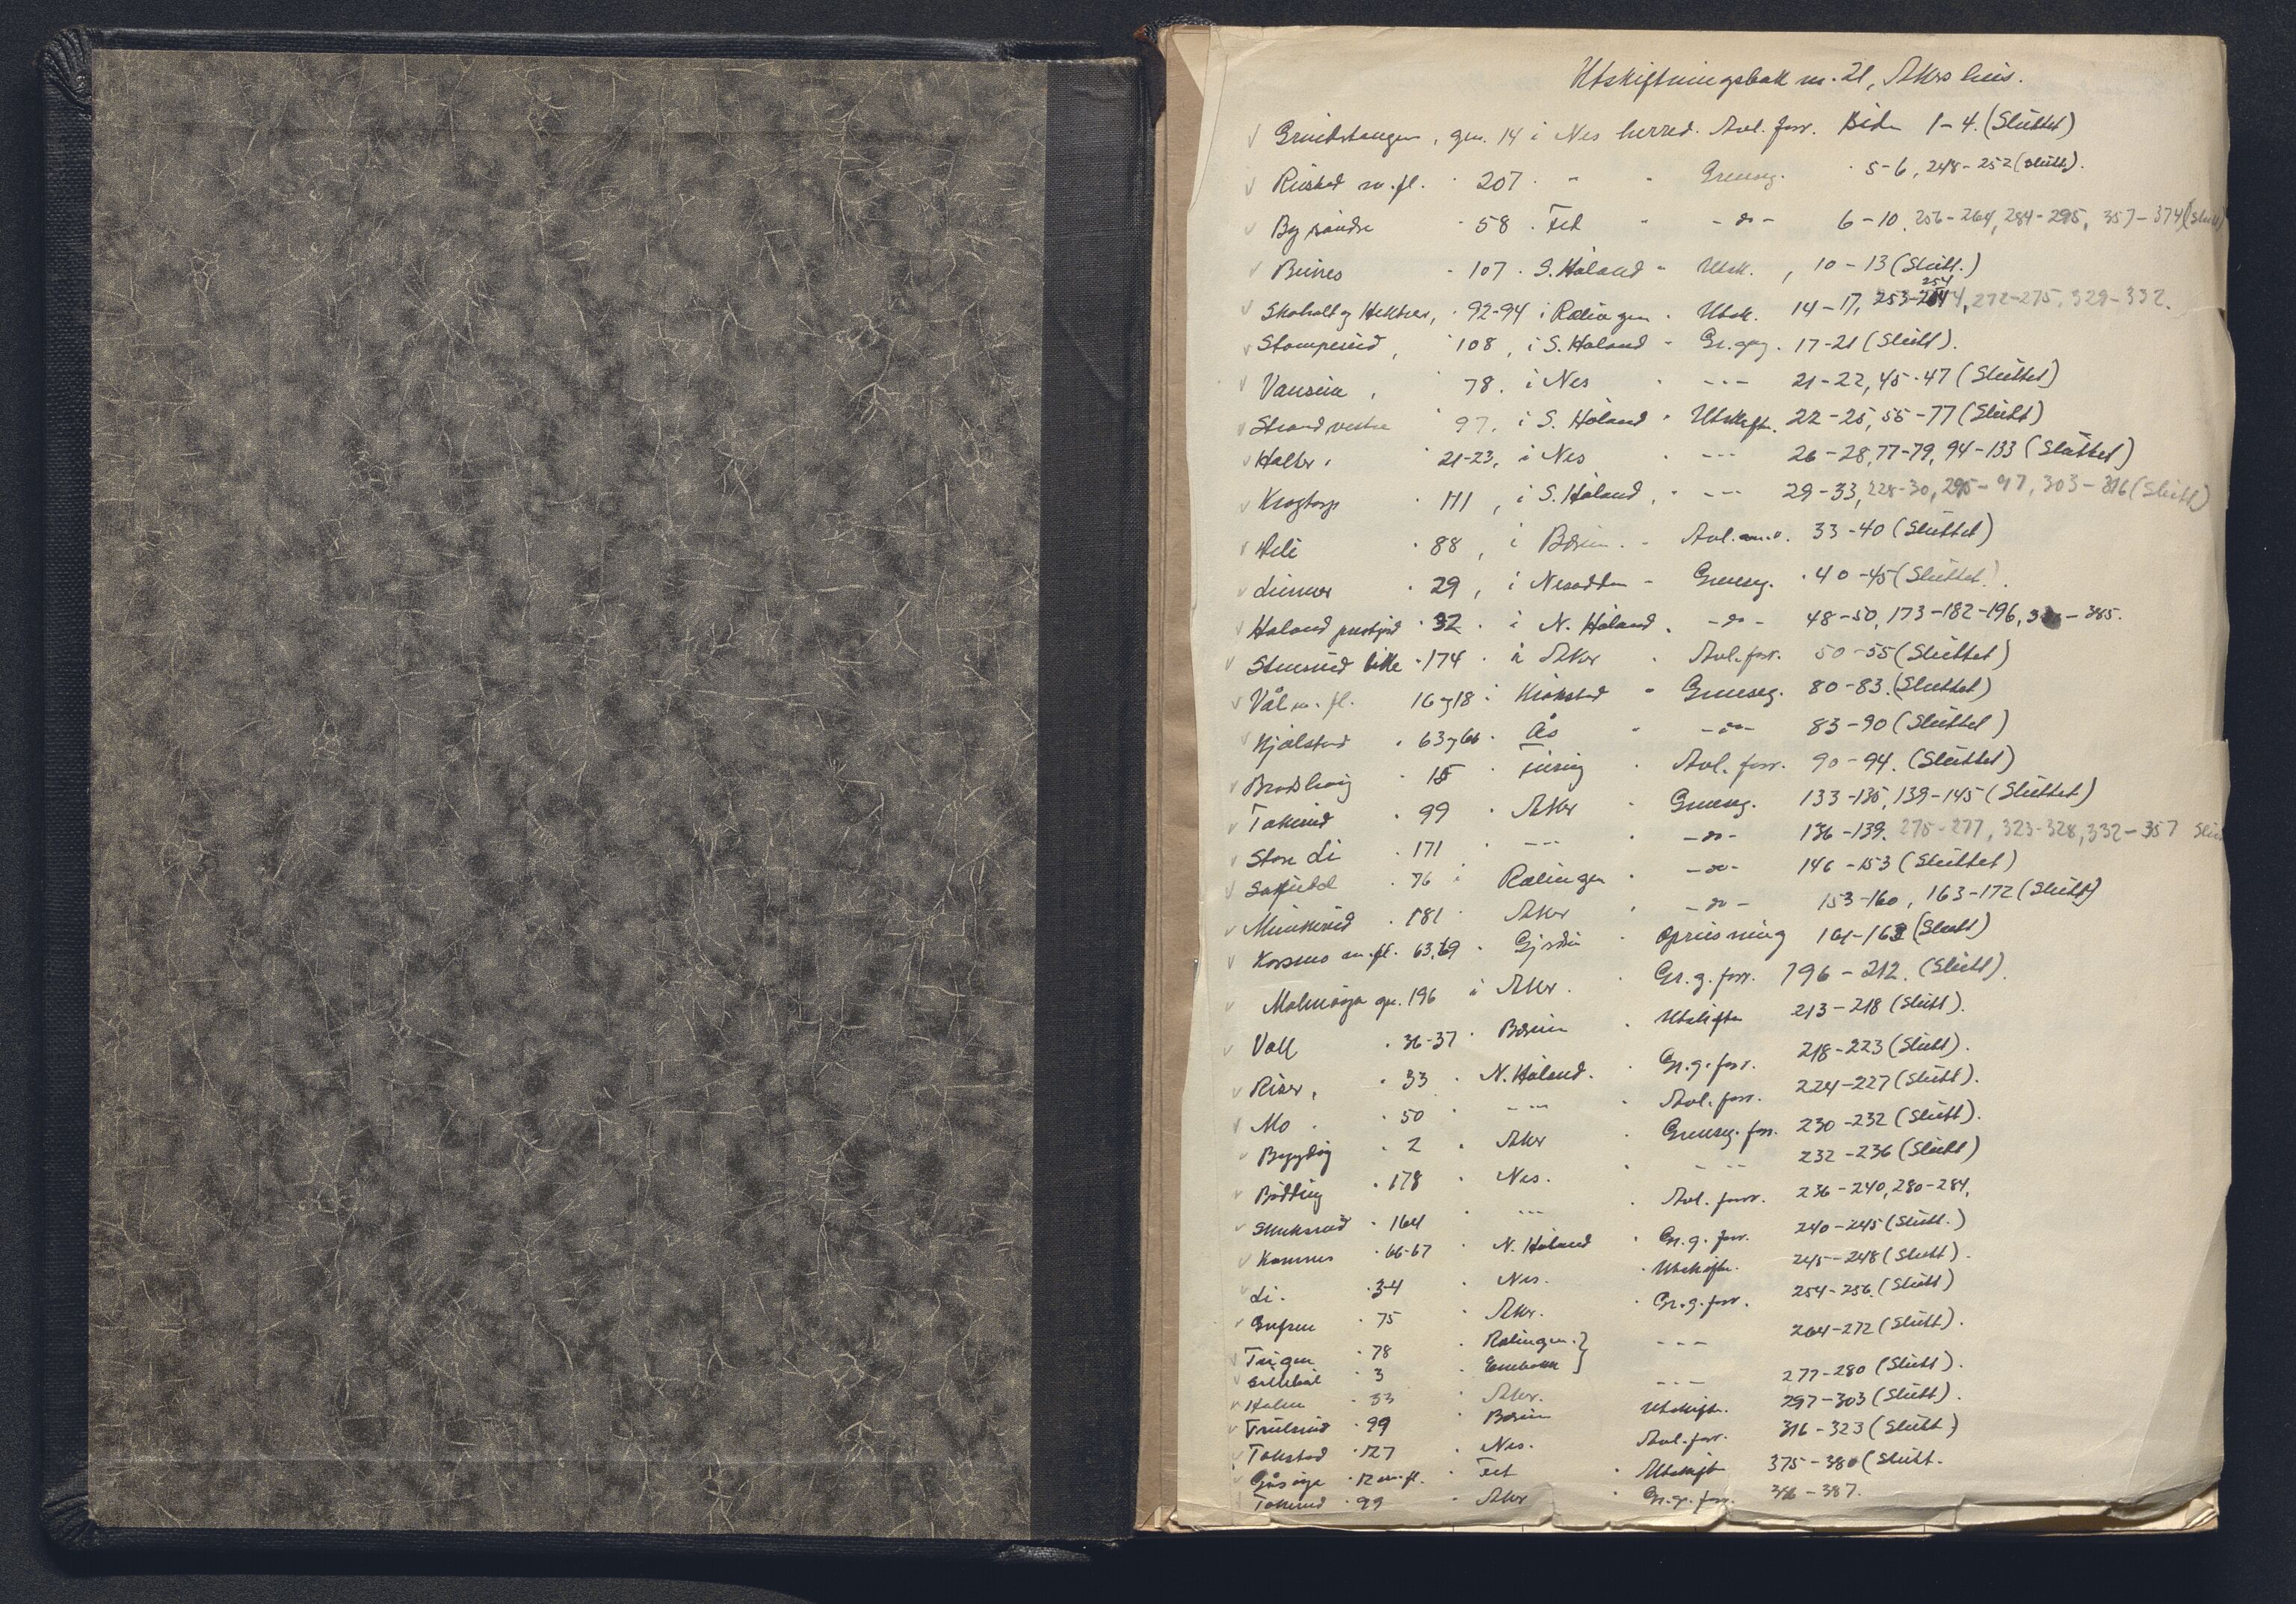 Utskiftningsbok nr. 21, Akershus.
√ Grindstangen, gnr. 14 i Nes herred. Avl. forr. Side 1-4. (Sluttet)
√ Rustad m.fl. · 207 · " " Grenseg. · 5-6, 248-252 (slutt).
√ By søndre · 58 · Fet " - do - 6-10, 256-264, 284-295, 357-374 (Slutt)
√ " 107 · S. Høland " Utsk. , 10-13 (Slutt.)
√ Skoholt og Hektner, · 92-94 i Rælingen · Utsk. 14-17, 253-254, 272-275, 329-332.
√ Stomperud, " 108, i S. Høland " Gr. gg. 17-21 (Slutt).
√ " 78. i Nes " --- 21-22, 45-47 (Sluttet)
√ Strand vestre " 97. i S. Høland " Utskiftn. 22-25, 55-77 (Slutt)
√ " 21-23, i Nes " --- 26-28, 77-79, 94-133 (Sluttet)
√ Krogtorp · 111, i S. Høland, " --- 29-33, 228-30, 295-97, 303-316 (Slutt)
√ · 88, i Bærum. " Avl. m.v. 33-40 (Sluttet)
√ · 29, i Nesodden " Grenseg. · 40-45 (Sluttet).
√ Høland prestgjd · 32 · i N. Høland. - do - 48-50, 173-182-196, - 385.
√ Stensrud lille · 174 · i Aker · Avl. forr. 50-55 (Sluttet)
√ Vål m. fl. 16 og 18 i Kråkstad " Grenseg. 80-83. (Sluttet)
√ Kjølstad · 63 og 66 · Ås " - do - 83-90 (Sluttet)
√ · 15 · · Avl. forr. 90-94. (Sluttet)
√ Tokerud · 99 · Aker " Grenseg. 133-135, 139-145 (Sluttet)
√ Store Li · 171 · --- · - do - 136-139. 275-277, 323-328, 332-357
√ · 76 i Rælingen · - do - 146-153 (Sluttet)
√ Munkerud · 181 · Aker · - do - 153-160, 163-172 (Slutt)
√ Korsmo m.fl. 63, 69 · · Oprensning 161-163 (Slutt)
√ Malmøya gnr. 196 i Aker. · Gr. g. forr. 196-212. (Slutt).
√ Voll · 36-37 · Bærum · Utskiftn 213-218 (Slutt).
√ Riser, · 33 · N. Høland. · Gr. g. forr. 218-223 (Slutt).
√ Mo · · 50 · --- · Avl. forr. 224-227 (Slutt).
√ Bygdøy · 2 · Aker · Grenseg. forr. 230-232 (Slutt).
√ · 178 · Nes. · - -- 232-236 (Slutt)
√ · 164 · --- · Avl. forr. 236-240, 280-284,
√ · 66-67 · N. Høland · Gr. g. forr. 240-245 (Slutt.)
√ Li. · 3-4 · Nes. · Utskiftn. 245-248 (Slutt).
√ Grefsen · 75 · Aker. · Gr. g. forr. 254-256. (Slutt)
√ · 78 · Rælingen. } --- 264-272 (Slutt).
√ · 3 · Enebakk }
√ Holm · 33 · Aker. --- 277-280 (Slutt).
√ · 99 · Bærum Utskiftn. 297-303 (Slutt).
√ · 127 · Nes. Avl. forr. 316-323 (Slutt)
√ Gåsøya · 12 m. fl. · Fet · Utskiftn 375-380 (Slutt.
√ Tokerud · 99 · Aker · Gr. g. forr. 386-387.